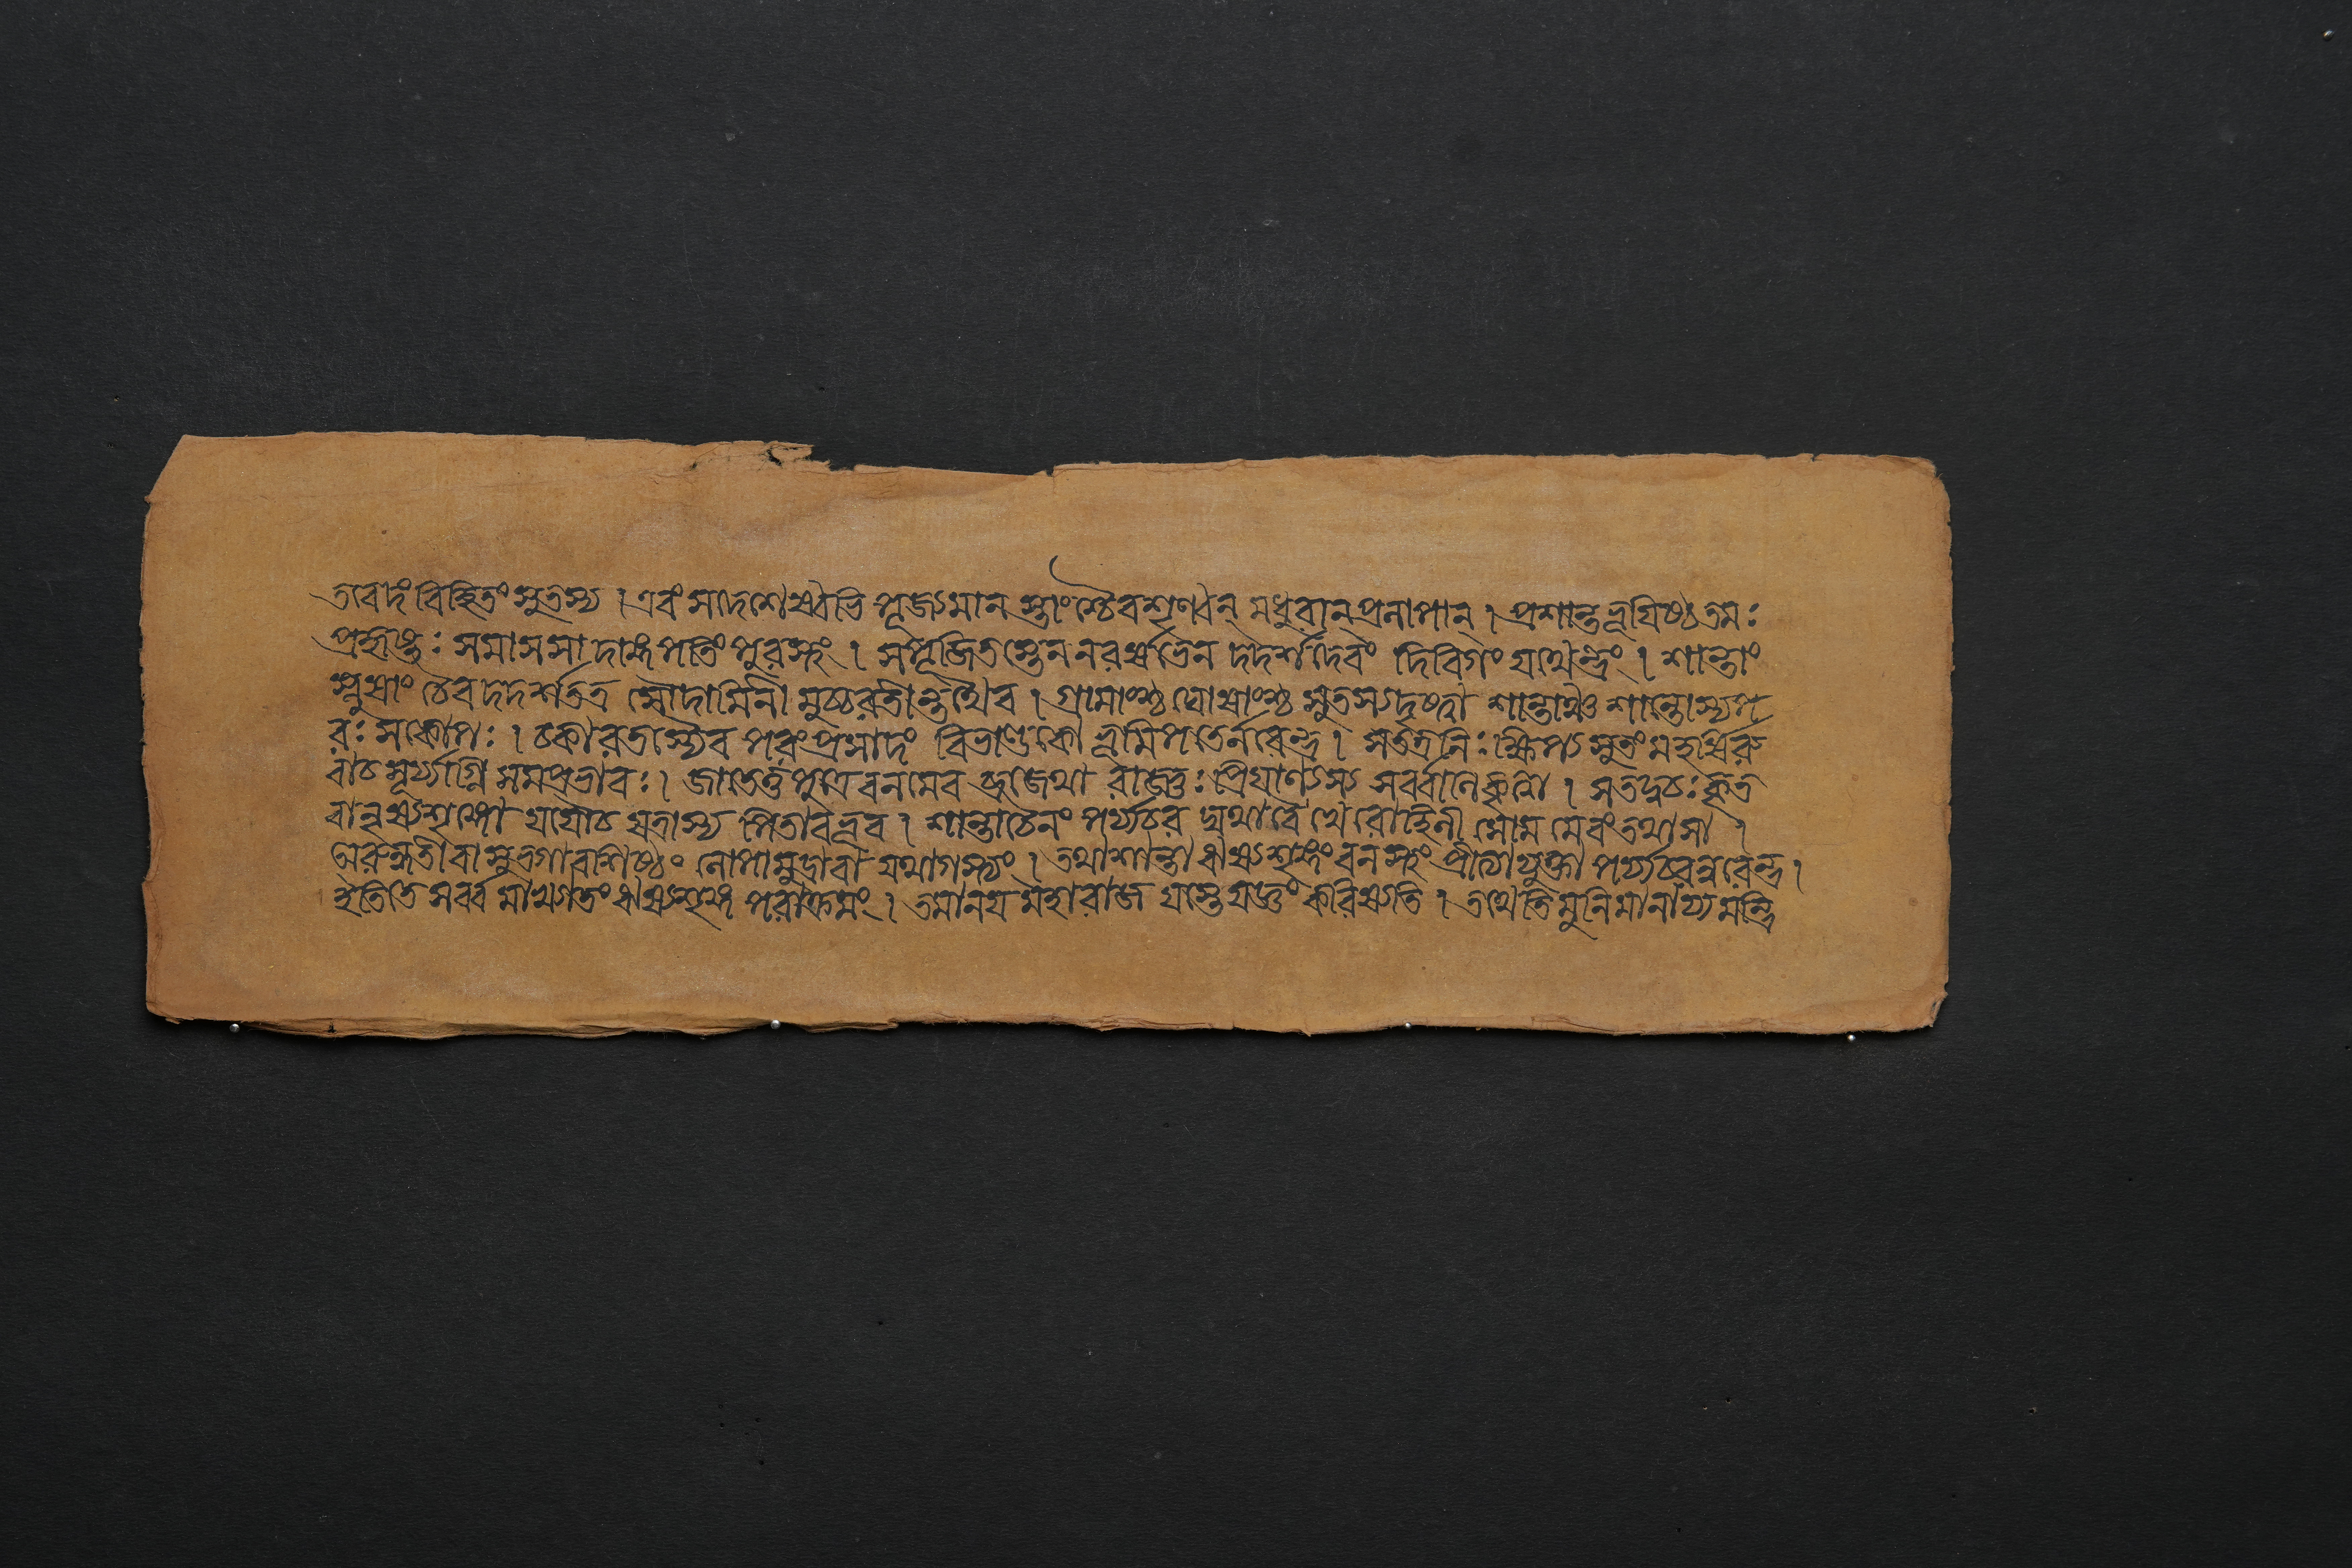 তাবদং বিহিতং সুতস্য । এবং সদেশেষ্বভি পূজ্যমান স্তাংশ্চৈবশৃণ্বন্ মধুরান্প্রলাপান্ । প্রশান্তভূয়িষ্ঠতমঃ
প্রহৃষ্টঃ সমাসসা দাঙ্গপতিং পুরস্থং । সম্পূজিতস্তেন নরর্ষভেন দদর্শদেবং দিবিগং যথেন্দ্রং । শান্তাং
স্নুষাং চৈব দদর্শতত্র সৌদামিনী মুচ্চরন্তীন্তথৈব । গ্রামাংশ্চ ঘোষাংশ্চ সুতস্যদৃষ্ট্বা শান্তাঞ্চ শান্তোস্যপ
রঃ সকোপঃ । চকারতস্যৈব পরংপ্রসাদং বিভাণ্ডকো ভূমিপতের্নরেন্দ্র । সতত্রনিঃক্ষিপ্য সুতং মহর্ষিরু
বাচ সূর্য্যাগ্নি সমপ্রভাবঃ । জাতেতু পুত্রে বনমেব ব্রজেথা রাজ্ঞঃ প্রিয়াণ্যস্য সর্ব্বানি কৃত্বা । সতদ্বচঃ কৃত
বানৃষ্যশৃঙ্গো যযৌচ যত্রাস্য পিতাবভূব । শান্তাচৈনং পর্য্যচর দ্যথাবৈ খেরোহিনী সোম মেবংতথাসা ।
অরুন্ধতীবা সুভগাবশিষ্ঠং লোপামুদ্রাবা যথাগস্ত্যং । তথাশান্তা ঋষ্যশৃঙ্গং বনস্থং প্রীত্যাযুক্তা পর্য্যচরন্নরেন্দ্র ।
ইতিতে সর্ব্ব মাখ্যাতং ঋষ্যশৃঙ্গ পরাক্রমং । তমানয় মহারাজ যস্তেযজ্ঞং করিষ্যতি । তথেতি মুনিমানায্য মন্ত্রি